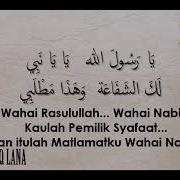 يَا رَسُوْلَ اللهِ يَا يَا نَبِي
لَكَ الشَّفَاعَةْ وَهَذَا مَطْلَبِي
Wahai Rasulullah... Wahai Nabi
Kaulah Pemilik Syafaat...
an itulah Matlamatku Wahai Na
Q LANA